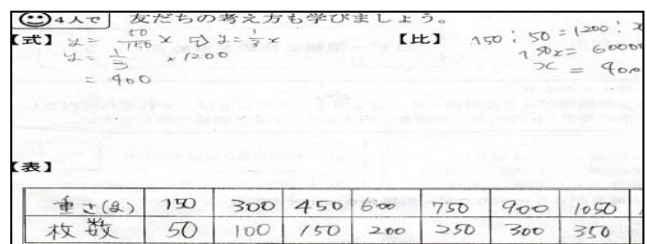 4人で 友だちの考え方も学びましょう。
【式】 y = 50/150 x ⇨ y = 1/3 x
y = 1/3 × 1200
= 400
【比】 150 : 50 = 1200 : x
150x = 60000
x = 400
【表】
重さ(g) 150 300 450 600 750 900 1050
枚数 50 100 150 200 250 300 350